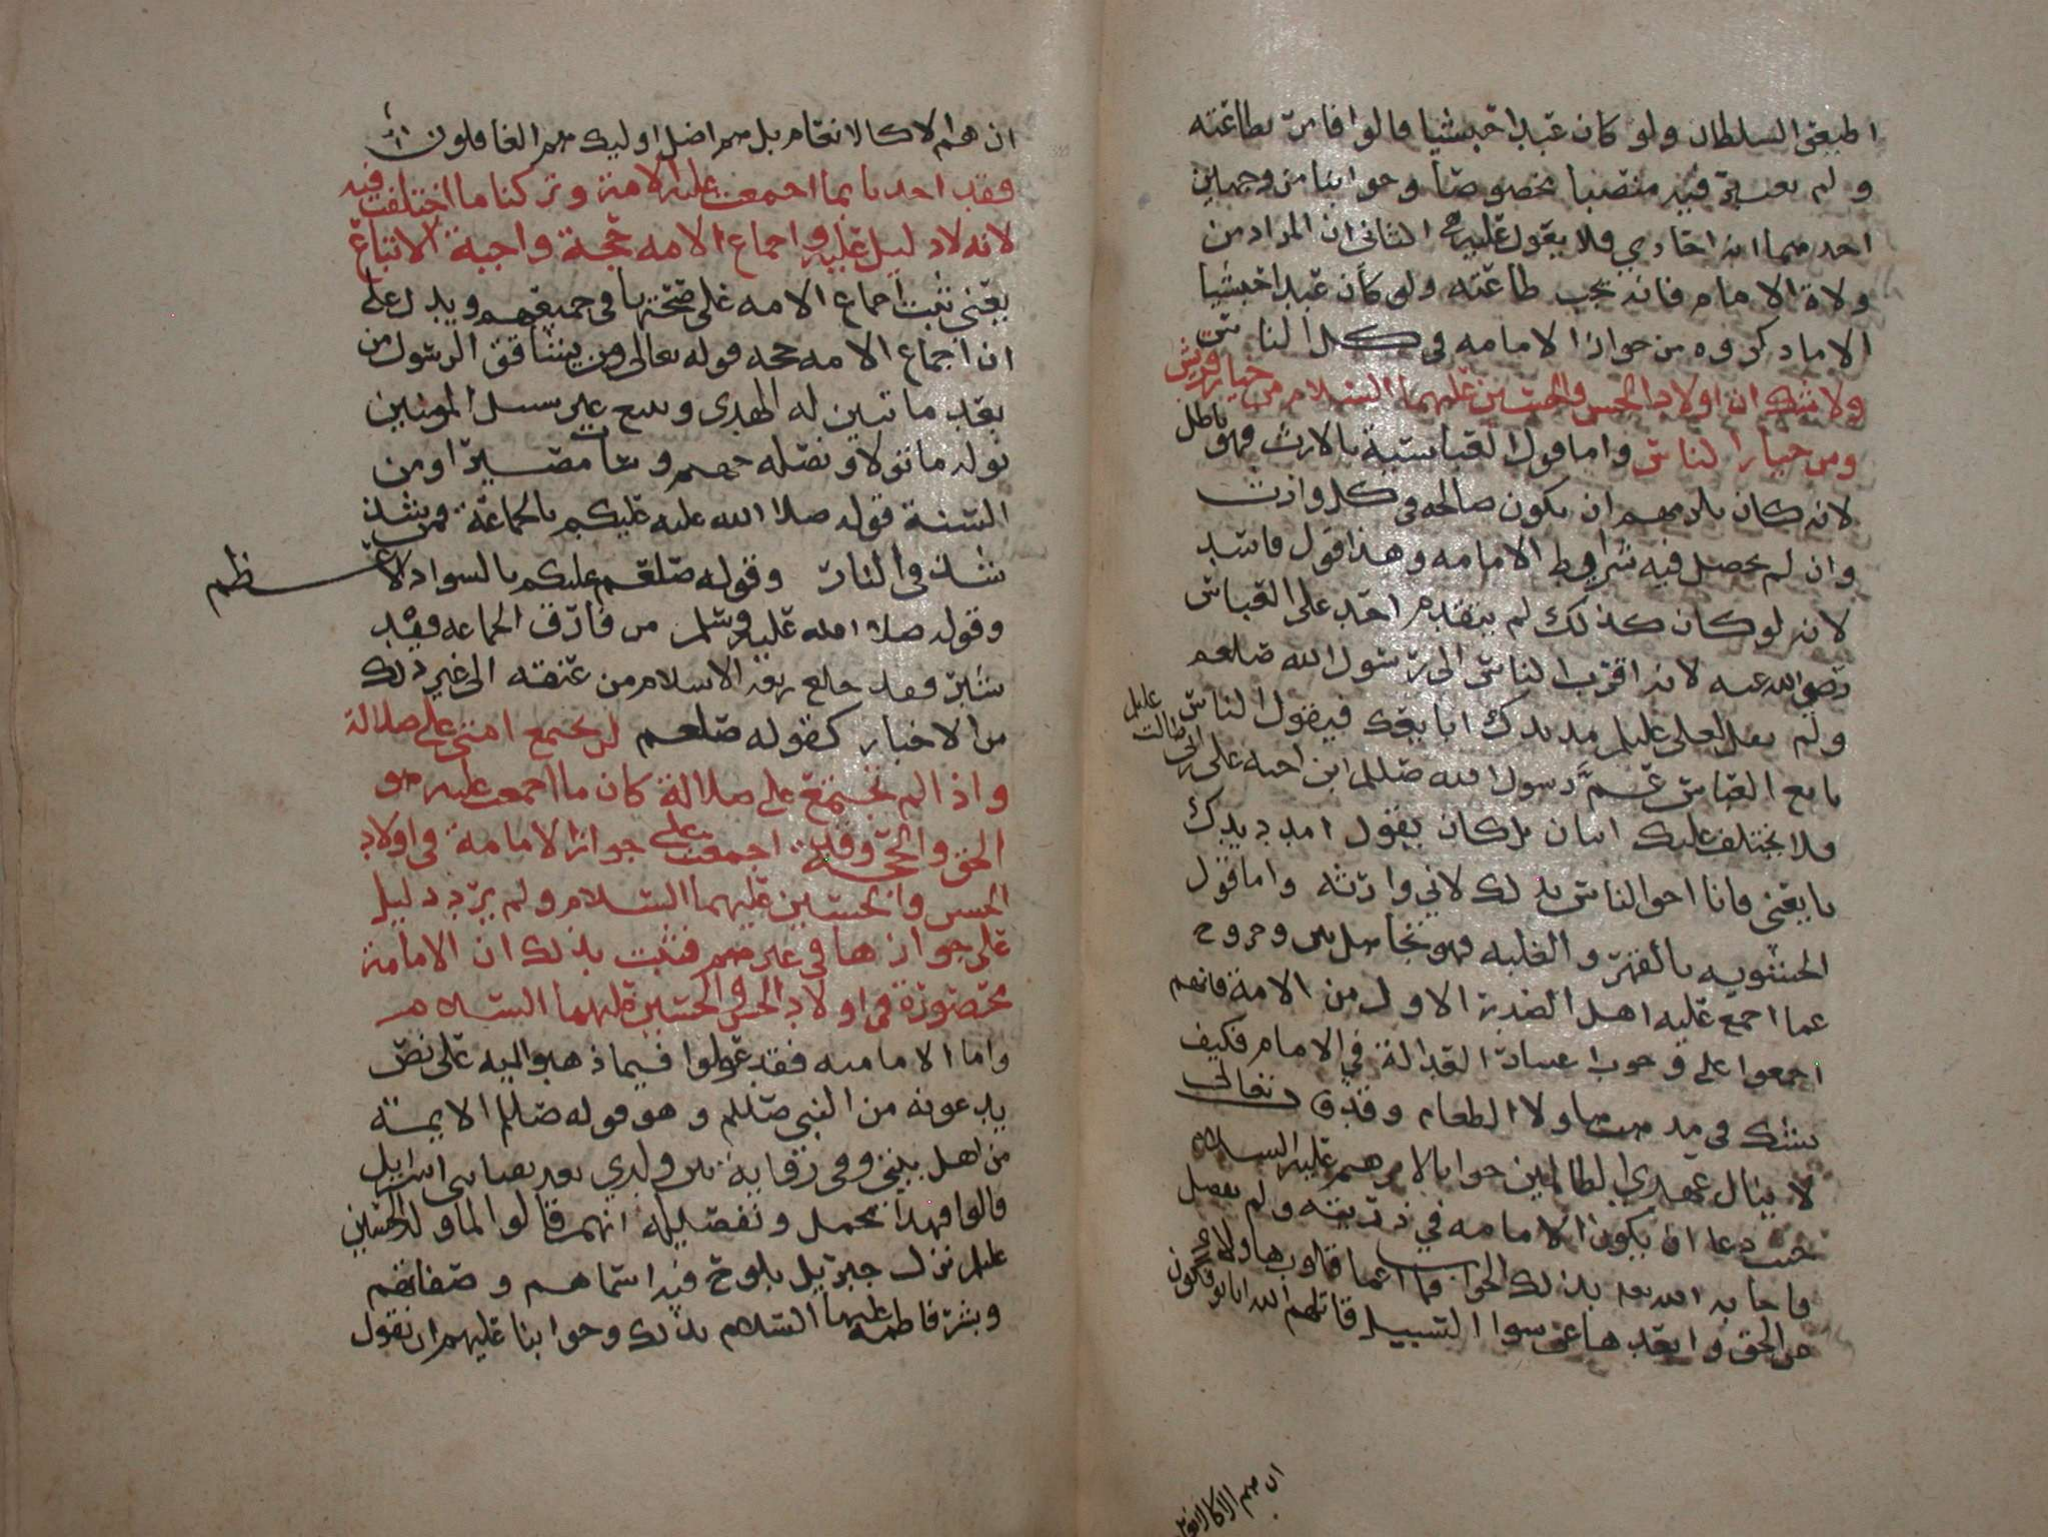 اطيعوا السلطان ولو كان عبدا حبشيا قالوا فامر بطاعته
ولم يعتبر فيه منصبا مخصوصا وجوابنا من وجهين
احدهما انه احادي فلا يعول عليه الثاني ان المراد من
ولاة الامام فانه يجب طاعته ولو كان عبدا حبشيا
لا ما ذكروه من جواز الامامه في كل الناس
ولا شك ان اولاد الحسن والحسين عليهما السلام من خيار قريش
ومن خيار الناس واما قول العباسية بالارث فهو باطل
لانه كان يلزمهم ان يكون صالحه في كل وارث
وان لم يحصل فيه شرايط الامامه وهذا قول فاسد
لانه لو كان كذلك لم يتقدم احد على العباس
رضي الله عنه لانه اقرب الناس الى رسول الله صلعم
ولم يقل لعلي عليلم مد يدك ابايعك فيقول الناس
بايع العباس عم رسول الله صللم ابن اخيه علي بن ابي طالب عليلم
فلا يختلف عليك اثنان بل كان يقول امدد يدك
بايعني فانا احق الناس بذلك لاني وارثه واما قول
الحشويه بالقهر والغلبه فهو تجاهل وخروج
عما اجمع عليه اهل الصدر الاول من الامة فانهم
اجمعوا على وجوب اعتبار العدالة في الامام فكيف
يشك في مد ولا الطعام وقد قال تعالى
لا ينال عهدي الظالمين جوابا لابرهيم عليه السلام
حيث دعا ان يكون الامامه في ذريته ولم يفصل
فاجابه الله بذلك الجواب فما اعما قلوب هاولاء
عن الحق وابعدها عن سوا السبيل قاتلهم الله انا يوفكون
ان هم الا كالانعام
ان هم الا كالانعام بل هم اضل اوليك هم الغافلون
فقد اخذنا بما اجمعت عليه الامة وتركنا ما اختلفت فيه
لانه لا دليل عليه واجماع الامه حجة واجبة الاتباع
يعني ثبت اجماع الامه على صحتها في جميعهم ويدل على
ان اجماع الامه حجه قوله تعالى ومن يشاقق الرسول من
بعد ما تبين له الهدى ويتبع غير سبيل المومنين
نوله ما تولا ونصله جهنم وسات مصيرا ومن
السنة قوله صلا الله عليه عليكم بالجماعة فمن شذ
شذ في النار وقوله صلعم عليكم بالسواد الاعظم
وقوله صلا الله عليه وسلم من فارق الجماعه قيد
شبر فقد خلع ربقة الاسلام من عنقه الى غير ذلك
من الاخبار كقوله صلعم لن تجتمع امتي على ضلالة
واذا لم تجتمع على ضلالة كان ما اجمعت عليه هو
الحق والحجة وقد اجمعت على جواز الامامة في اولاد
الحسن والحسين عليهما السلام ولم يرد دليل
على جوازها في غيرهم فثبت بذلك ان الامامة
محصورة في اولاد الحسن والحسين عليهما السلام
واما الاماميه فقد عولوا فيما ذهبوا اليه على نص
يدعونه من النبي صللم وهو قوله صللم الايمة
من اهل بيتي وفي رواية من ولدي بعدد نقبا بني اسرايل
قالوا فهذا مجمل وتفصيله انهم قالوا لما ولد الحسين
عليلم نزل جبريل بلوح فيه اسماهم وصفاتهم
وبشر فاطمة عليها السلام بذلك وجوابنا عليهم ان نقول